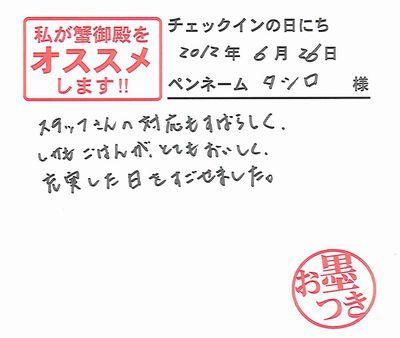 私が蟹御殿を
オススメ
します!!
チェックインの日にち
2012年 6月 26日
ペンネーム タシロ 様
スタッフさんの対応もすばらしく、
しかもごはんが、とてもおいしく、
充実した日をすごせました。
お墨つき